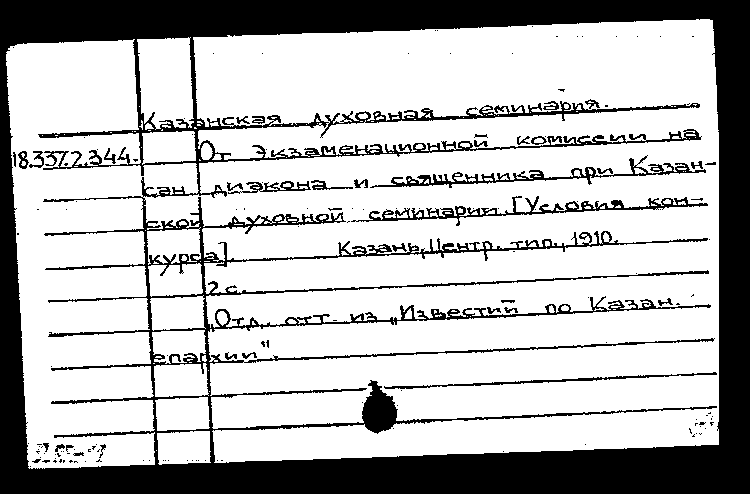 Казанская духовная семинария.
18.337.2.344. От экзаменационной комиссии на
сан диакона и священника при Казан-
ской духовной семинарии. [Условия кон-
курса]. Казань, Центр. тип., 1910.
2 с.
„Отд. отт. из „Известий по Казан.
епархии".